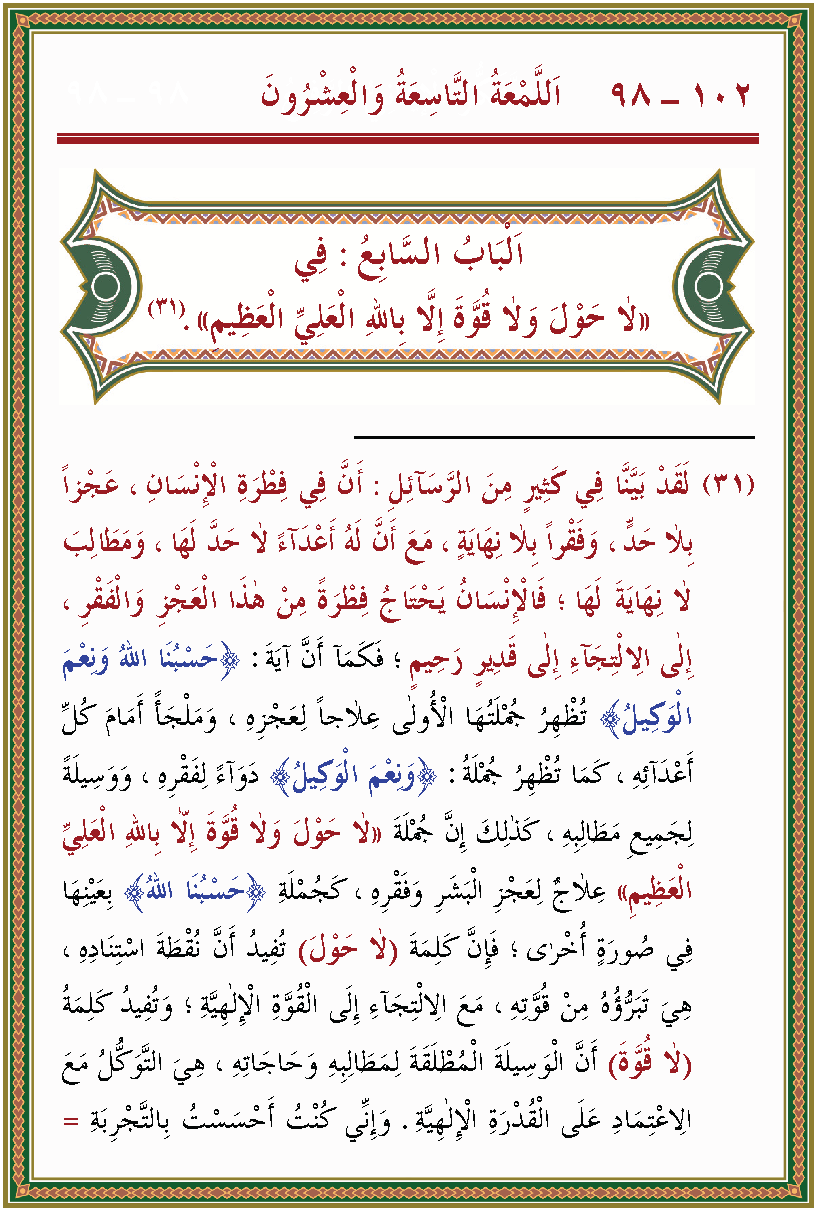 ١٠٢ ـ ٩٨ اَللَّمْعَةُ التَّاسِعَةُ وَالْعِشْرُونَ
اَلْبَابُ السَّابِعُ : فِي
«لاٰ حَوْلَ وَلاٰ قُوَّةَ إِلَّا بِاللهِ الْعَلِيِّ الْعَظِيمِ» .(٣١)
(٣١) لَقَدْ بَيَّنَّا فِي كَثِيرٍ مِنَ الرَّسَآئِلِ : أَنَّ فِي فِطْرَةِ الْإِنْسَانِ ، عَجْزاً
بِلاٰ حَدٍّ ، وَفَقْراً بِلاٰ نِهَايَةٍ ، مَعَ أَنَّ لَهُ أَعْدَآءً لاٰ حَدَّ لَهَا ، وَمَطَالِبَ
لاٰ نِهَايَةَ لَهَا ؛ فَالْإِنْسَانُ يَحْتَاجُ فِطْرَةً مِنْ هٰذَا الْعَجْزِ وَالْفَقْرِ ،
إِلٰى الِالْتِجَآءِ إِلٰى قَدِيرٍ رَحِيمٍ ؛ فَكَمَآ أَنَّ آيَةَ : ﴿حَسْبُنَا اللهُ وَنِعْمَ
الْوَكِيلُ﴾ تُظْهِرُ جُمْلَتُهَا الْأُولٰى عِلاٰجاً لِعَجْزِهِ ، وَمَلْجَأً أَمَامَ كُلِّ
أَعْدَآئِهِ ، كَمَا تُظْهِرُ جُمْلَةُ : ﴿وَنِعْمَ الْوَكِيلُ﴾ دَوَآءً لِفَقْرِهِ ، وَوَسِيلَةً
لِجَمِيعِ مَطَالِبِهِ ، كَذٰلِكَ إِنَّ جُمْلَةَ «لاٰ حَوْلَ وَلاٰ قُوَّةَ إِلّا بِاللهِ الْعَلِيِّ
الْعَظِيمِ» عِلاٰجٌ لِعَجْزِ الْبَشَرِ وَفَقْرِهِ ، كَجُمْلَةِ ﴿حَسْبُنَا اللهُ﴾ بِعَيْنِهَا
فِي صُورَةٍ أُخْرٰى ؛ فَإِنَّ كَلِمَةَ (لاٰ حَوْلَ) تُفِيدُ أَنَّ نُقْطَةَ اسْتِنَادِهِ ،
هِيَ تَبَرُّؤُهُ مِنْ قُوَّتِهِ ، مَعَ الِالْتِجَآءِ إِلَى الْقُوَّةِ الْإِلٰهِيَّةِ ؛ وَتُفِيدُ كَلِمَةُ
(لاٰ قُوَّةَ) أَنَّ الْوَسِيلَةَ الْمُطْلَقَةَ لِمَطَالِبِهِ وَحَاجَاتِهِ ، هِيَ التَّوَكُّلُ مَعَ
الِاعْتِمَادِ عَلَى الْقُدْرَةِ الْإِلٰهِيَّةِ . وَإِنِّي كُنْتُ أَحْسَسْتُ بِالتَّجْرِبَةِ =